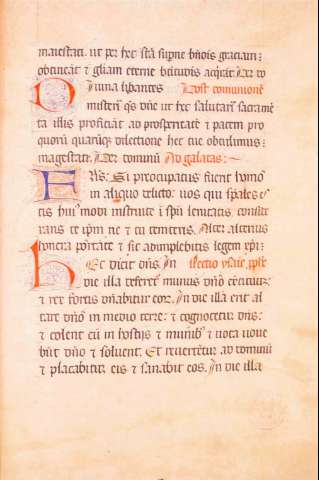 maiestati. ut per hec sc̄a supne bn̄ois graciam:
obtineat ⁊ gl̄iam eterne btitudis aq̄rat. Per do
Diuina libantes Post comunionē
misteri q̄s dn̄e ut hec salutari sacramē
ta illis proficiāt ad prosperitatē ⁊ pacem pro
quorū quarūq̄ dilectione hec tue obtulimus:
magestati. Per dominū Ad galatas:~
FR̄s: Si preocupatus fuerit homo
in aliquo delicto: uos qui sp̄ales es
tis huiꝰ modi instruite ī sp̄u lenitatis, conside
rans te ip̄m ne ⁊ tu temteris. Alter alterius
honera portate ⁊ sic adimplebitis legem xp̄i:
Hec dicit dn̄s. In lectio ysaie, ꝓphe
die illa deferet munus dn̄o exercituū:
⁊ rex fortis dn̄abitur eor. In die illa erit al
tare dn̄o in medio terre: ⁊ cognocetur dn̄s:
⁊ colent eū in hostijs ⁊ munibꝰ ⁊ uota voue
būt dn̄o ⁊ soluent. Et reuertētur ad dominū
⁊ placabitur eis ⁊ sanabit eos. In die illa